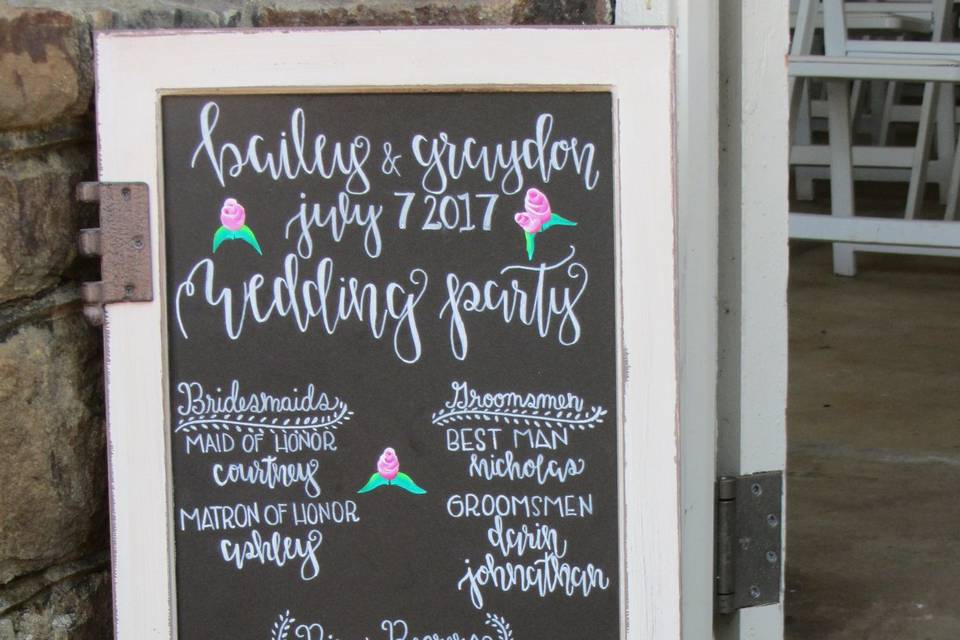 bailey & graydon
july 7 2017
Wedding party
Bridesmaids
MAID OF HONOR
courtney
MATRON OF HONOR
ashley
Groomsmen
BEST MAN
nicholas
GROOMSMEN
darin
johnathan